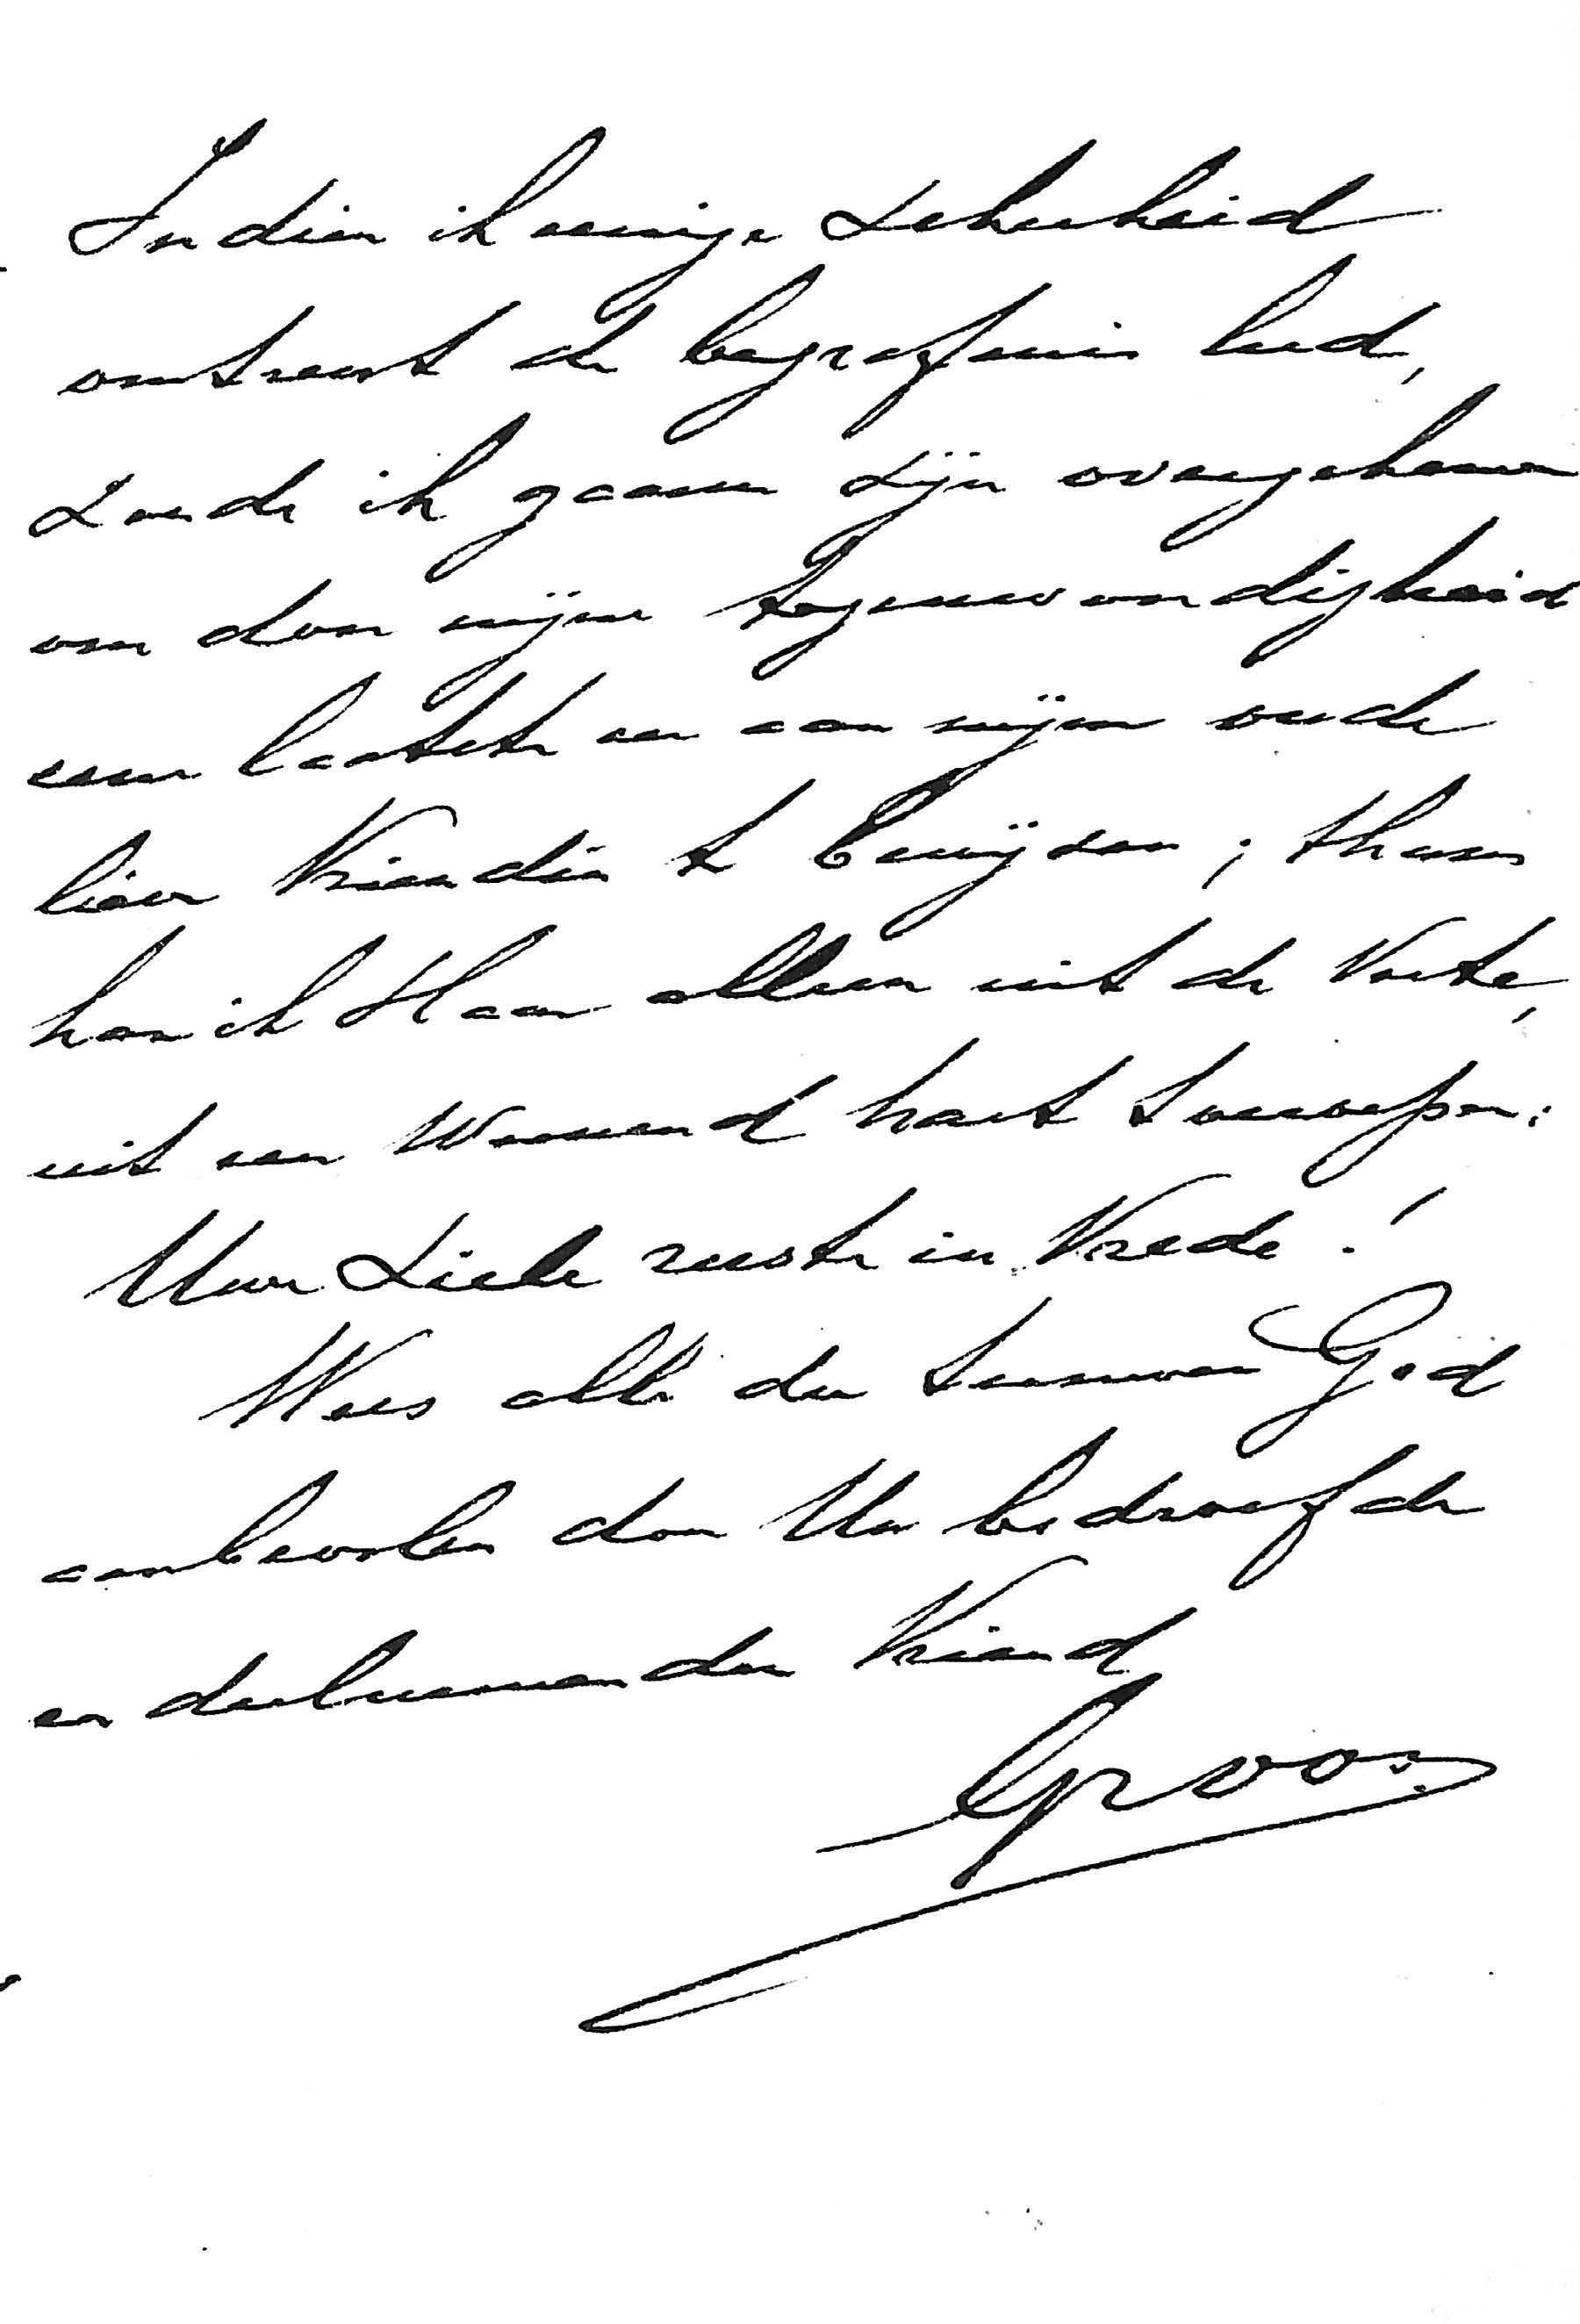 Indien ik eenige zekerheid
omtrent de begrafenis had,
zoude ik gaarne zijn overgekomen
om door mijne tegenwoordigheid
een laatste eer aan mijne oude
lieve Vriendin te bewijzen; thans
kan ik Haar alleen uit de Verte,
uit een Wenend hart toeroepen:
Uwe Ziele ruste in Vrede!
Wees allen den trouwen God
aanbevolen door Uw bedroefde
en deelnemenden Vriend